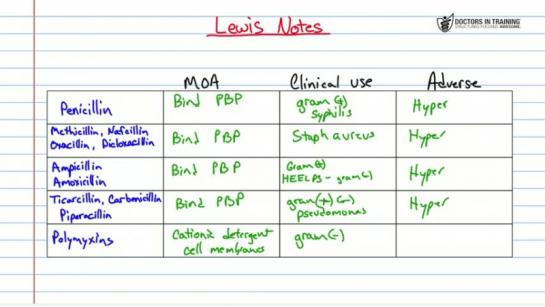 Lewis Notes
DOCTORS IN TRAINING
MOA Clinical use Adverse
Penicillin Bind PBP gram (+) Hyper
Syphilis
Methicillin, Nafcillin Bind PBP Staph aureus Hyper
Oxacillin, Dicloxacillin
Ampicillin Bind PBP Gram (+) Hyper
Amoxicillin HEELPS - gram (-)
Ticarcillin, Carbenicillin Bind PBP gram (+) (-) Hyper
Piperacillin pseudomonas
Polymyxins Cationic detergent gram (-)
cell membranes